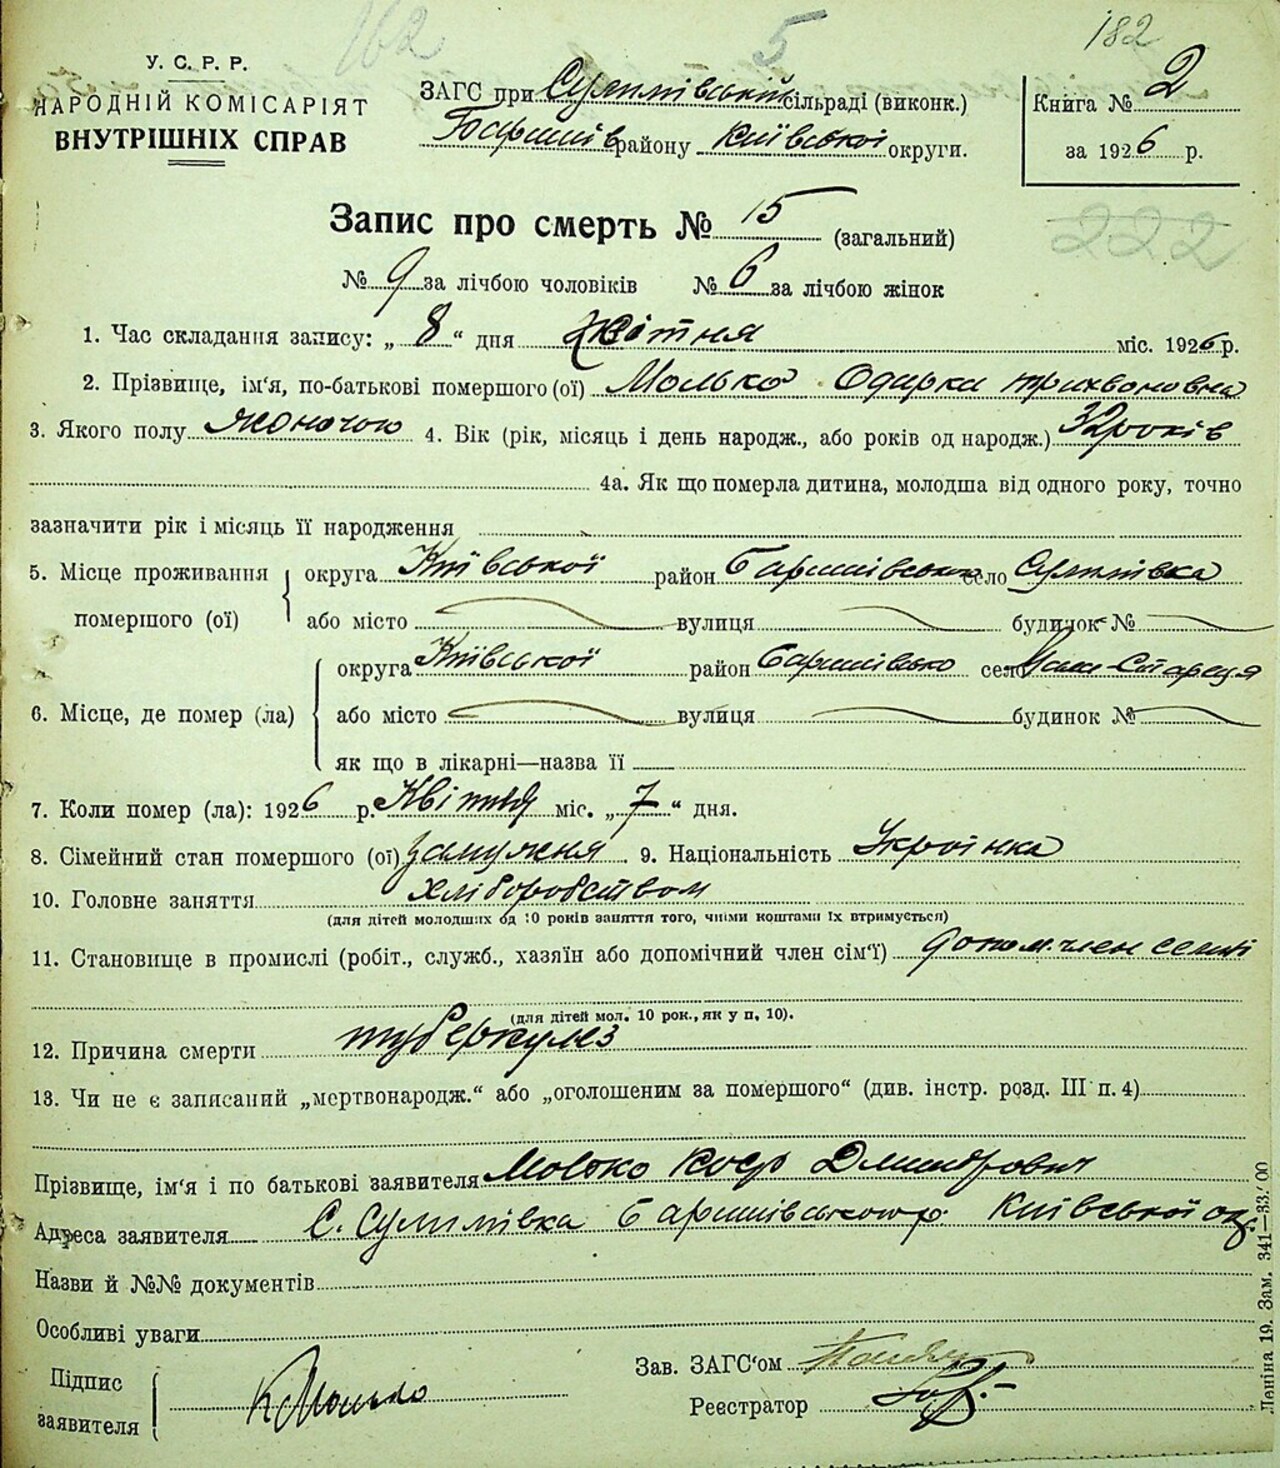 162 5 182
У. С. Р. Р.
НАРОДНІЙ КОМІСАРІЯТ
ВНУТРІШНІХ СПРАВ
ЗАГС при Сулимівській сільраді (виконк.)
Баришів району Київської округи.
Книга № 2
за 1926 р.
222
Запис про смерть № 15 (загальний)
№ 9 за лічбою чоловіків № 6 за лічбою жінок
1. Час складання запису: „ 8 “ дня Квітня міс. 1926 р.
2. Прізвище, ім‘я, по-батькові помершого (ої) Молько Одарки Трихвоновна
3. Якого полу жоночою 4. Вік (рік, місяць і день народж., або років од народж.) 32 років
4а. Як що померла дитина, молодша від одного року, точно
зазначити рік і місяць її народження
5. Місце проживання помершого (ої) округа Київської район Баришівського село Сулимівка
або місто вулиця будинок №
6. Місце, де помер (ла) округа Київської район Баришівсько село Стариця
або місто вулиця будинок №
як що в лікарні—назва її
7. Коли помер (ла): 1926 р. Квітня міс. „ 7 “ дня.
8. Сімейний стан помершого (ої) замужня 9. Національність Українка
10. Головне заняття хліборобством
(для дітей молодших од 10 років заняття того, чиїми коштами їх втримується)
11. Становище в промислі (робіт., служб., хазяїн або допомічний член сім‘ї) допом. член семї
(для дітей мол. 10 рок., як у п. 10).
12. Причина смерти туберкулез
13. Чи не є записаний „мертвонародж.“ або „оголошеним за помершого“ (див. інстр. розд. III п. 4)
Прізвище, ім‘я і по батькові заявителя Молько Дмитрович
Адреса заявителя С. Сулимівка Баришівського р. Київської ок.
Назви й №№ документів
Особливі уваги
Підпис заявителя К Молько
Зав. ЗАГС‘ом
Реєстратор
Леніна 19. Зам. 341—33.